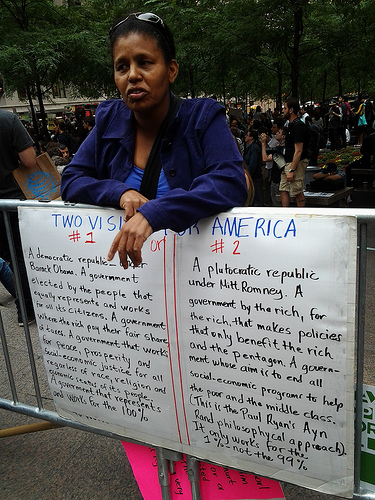 TWO VISI OR AMERICA
#1 or #2
A democratic republic under
Barack Obama. A government
elected by the people that
equally represents and works
for all its citizens. A government
where the rich pay their fair share
of taxes. A government that works
for peace, prosperity and
social-economic justice for all
regardless of race, religion and
economic status of its people.
A government that represents
and works for the 100%
A plutocratic republic
under Mitt Romney. A
government by the rich, for
the rich, that makes policies
that only benefit the rich
and the pentagon. A govern-
ment whose aim is to end all
social-economic programs to help
the poor and the middle class.
(This is the Paul Ryan's Ayn
Rand philosophical approach).
It only works for the
1% - not the 99%